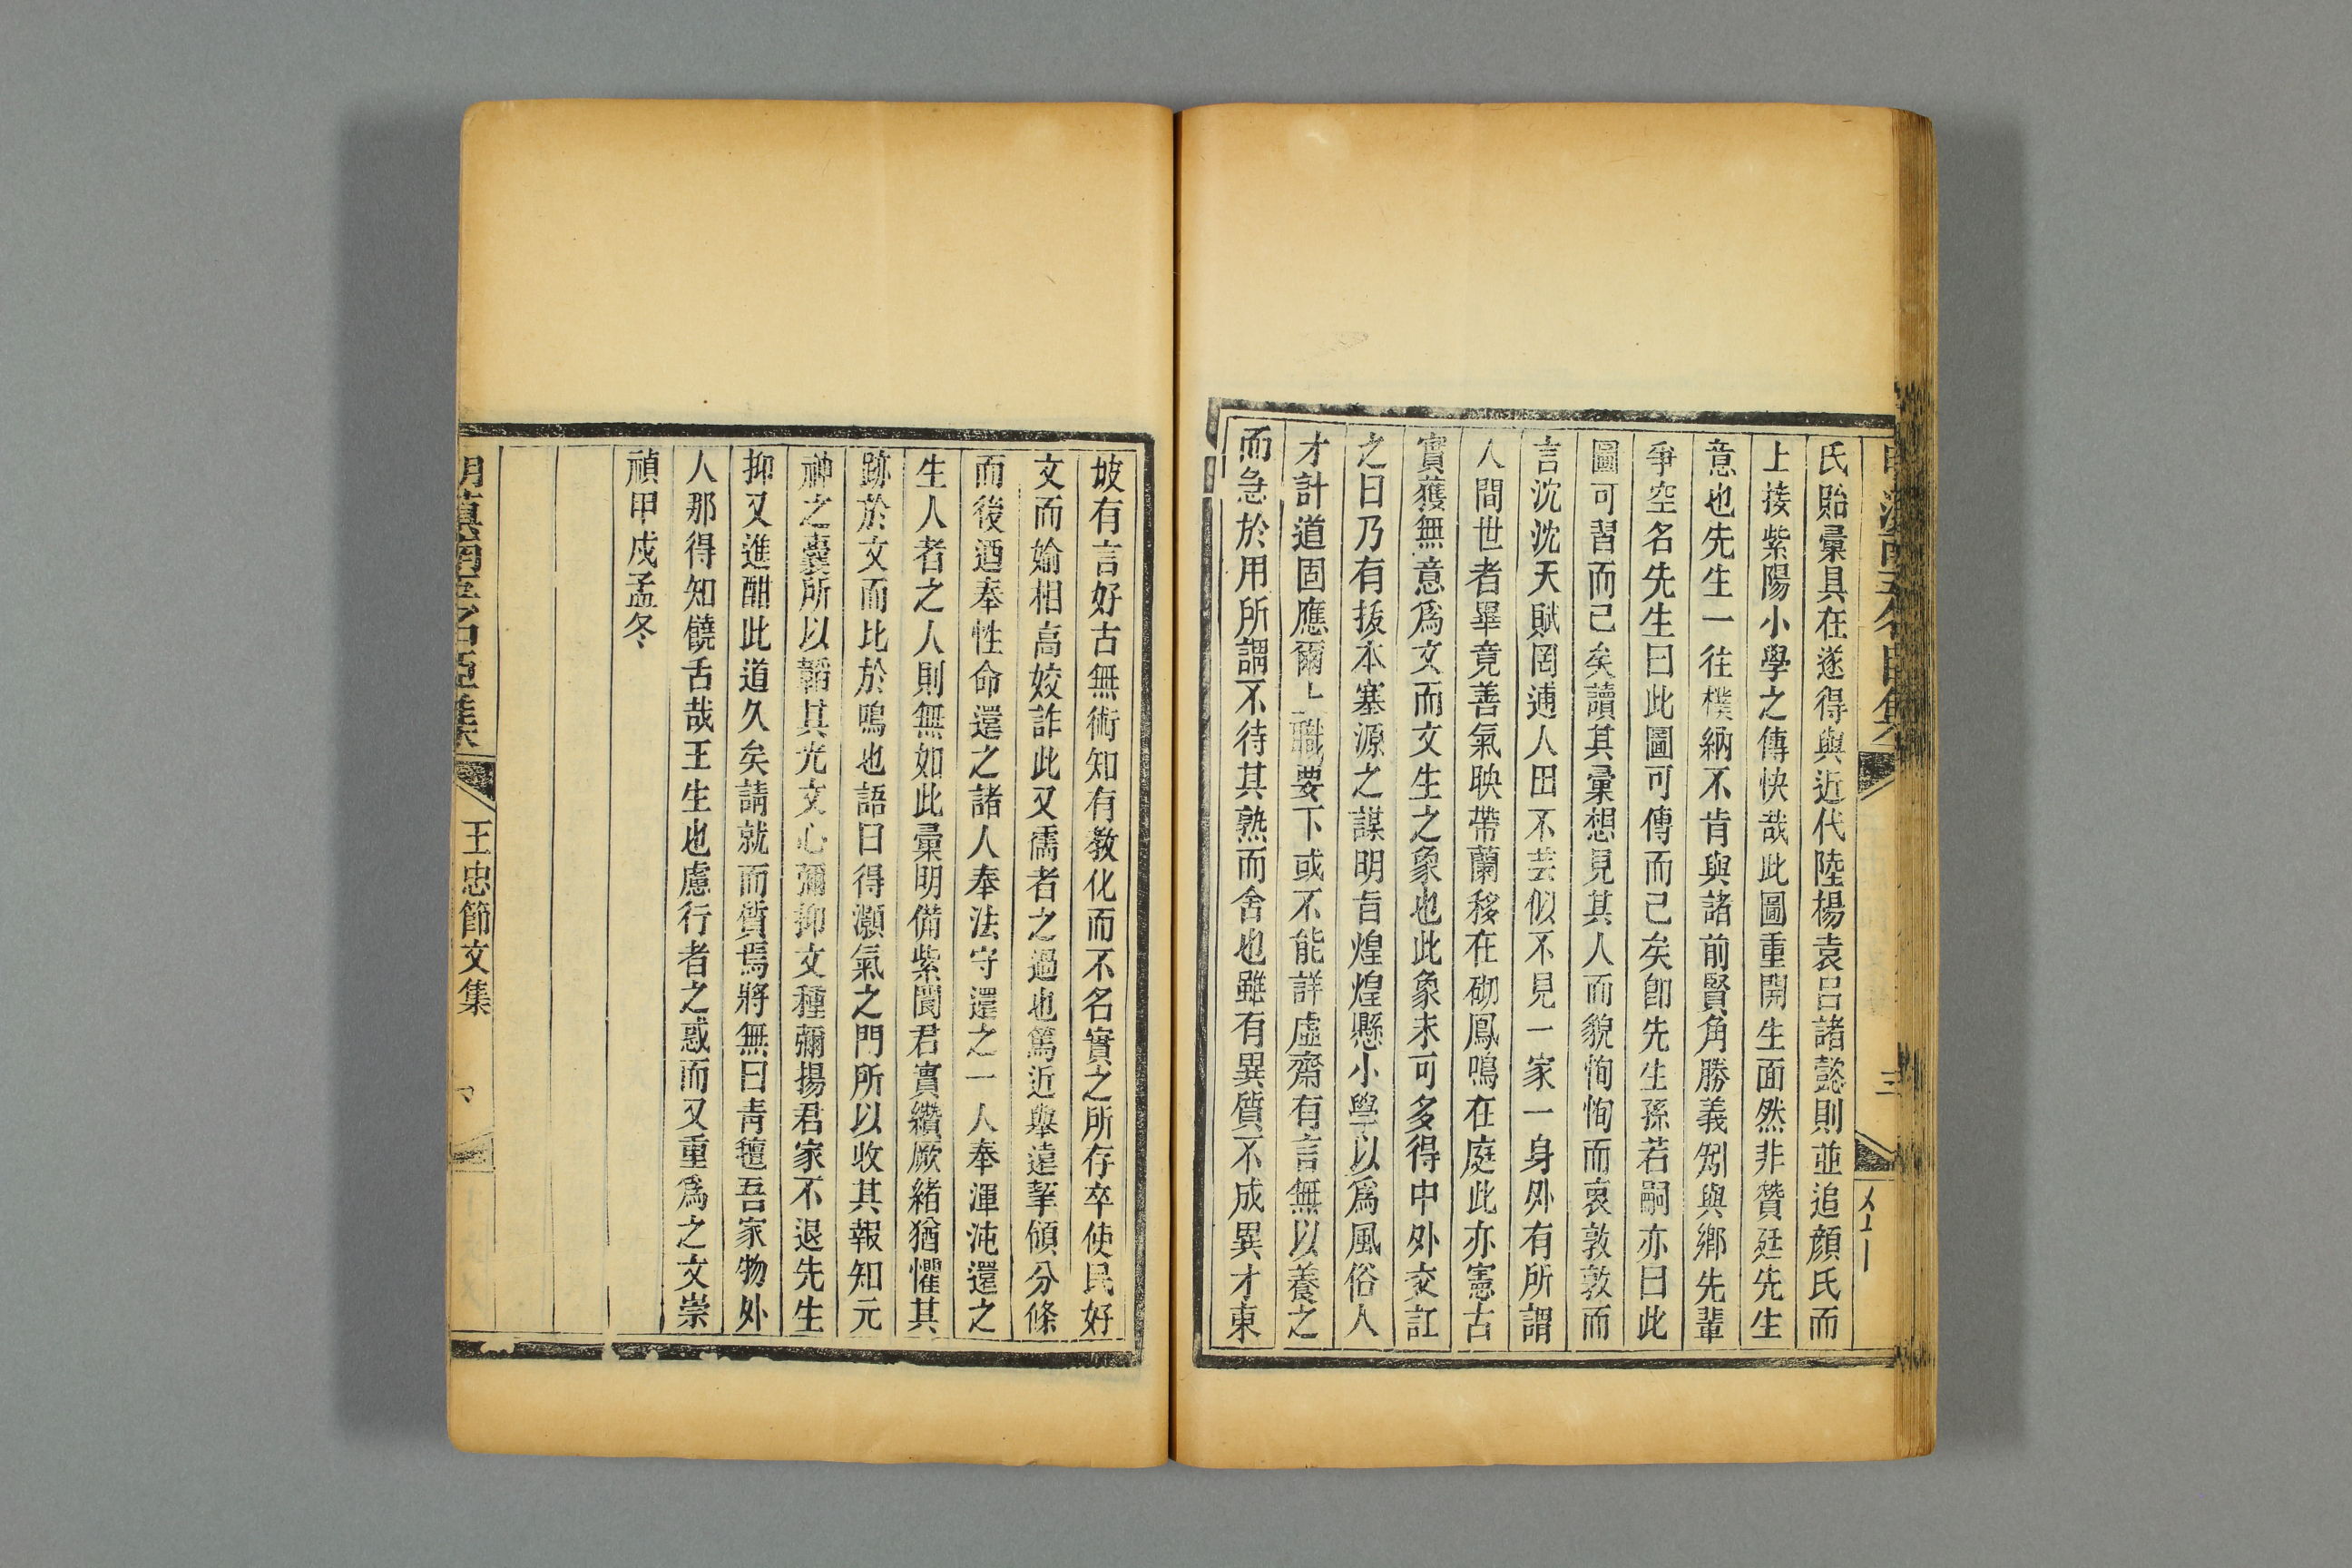 氏貽彙具在遂得與近代陸楊袁呂諸懿則並追顏氏而
上接紫陽小學之傳快哉此圖重開生面然非贊廷先生
意也先生一往樸納不肯與諸前賢角勝義例與鄉先輩
爭空名先生曰此圖可傳而已矣卽先生孫若嗣亦曰此
圖可習而已矣讀其彙想見其人而貌恂恂而衷敦敦而
言沈沈天賦罔逋人田不芸似不見一家一身外有所謂
人間世者畢竟善氣映帶蘭移在砌鳳鳴在庭此亦憲古
實蘀無意爲文而文生之象也此象未可多得中外交訌
之日乃有拔本塞源之謀明旨煌煌懸小學以爲風俗人
才計道固應爾上職要下或不能詳虛齋有言無以養之
而急於用所謂不待其熟而舍也雖有異質不成異才東
坡有言好古無術知有教化而不名實之所存卒使民好
文而婾相高姣詐此又儒者之過也篤近舉遠挈領分條
而後迺奉性命還之諸人奉法守還之一人奉渾沌還之
生人者之人則無如此彙明備紫閬君實纘厥緒猶懼其
跡於文而比於鳴也語曰得灝氣之門所以收其報知元
神之囊所以韜其光文心彌抑文種彌揚君家不退先生
抑又進酣此道久矣請就而質焉將無曰靑氊吾家物外
人那得知饒舌哉王生也慮行者之惑而又重爲之文崇
禎甲戌孟冬
王忠節文集
三